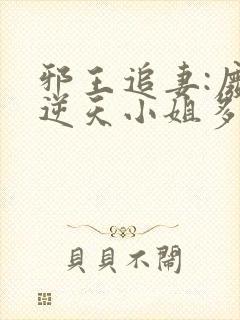 邪王追妻:
逆天小姐
貝貝不鬧